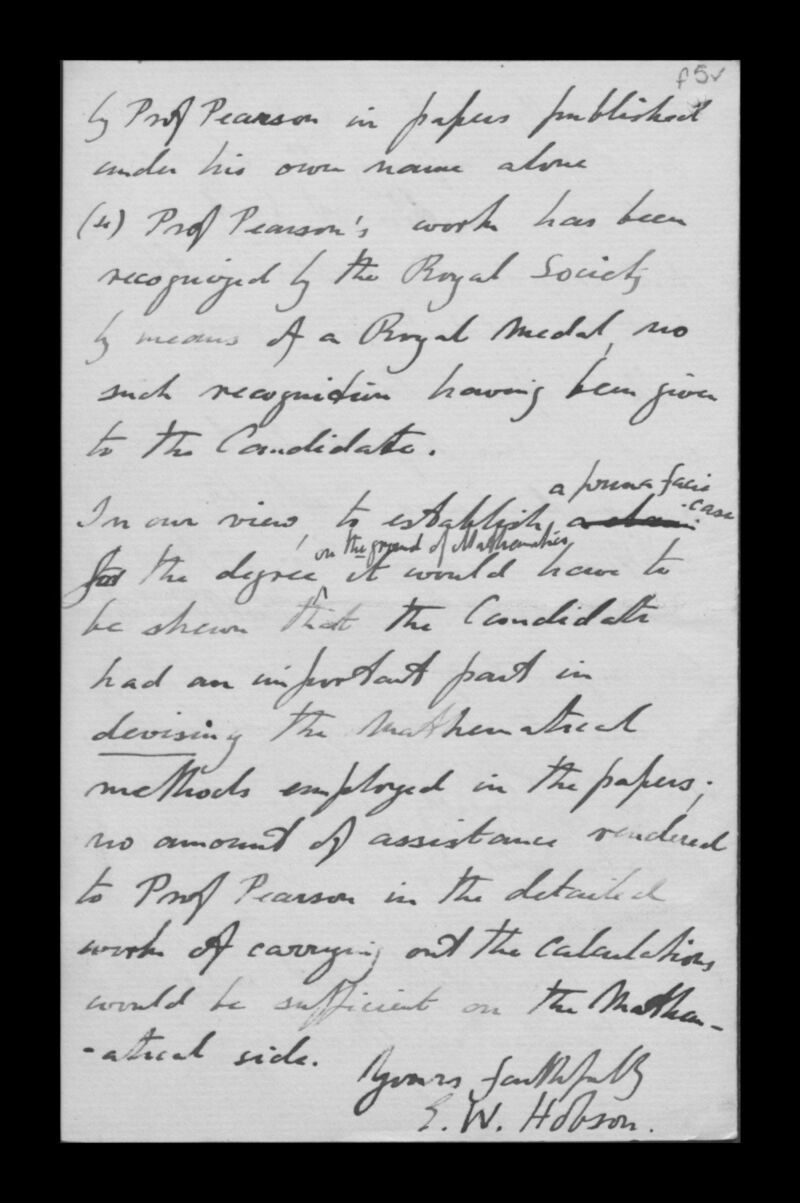 f5v
by Prof Pearson in papers published
under his own name alone
(4) Prof Pearson's work has been
recognized by the Royal Society
by means of a Royal Medal, no
such recognition having been given
to the Candidate.
a prima facie
-case
In our view, to establish a claim
on the ground of Mathematics,
for the degree, it would have to
be shewn that the Candidate
had an important part in
devising the Mathematical
methods employed in the papers;
no amount of assistance rendered
to Prof Pearson in the detailed
work of carrying out the calculations
would be sufficient on the Mathem-
-atical side.
Yours faithfully
E. W. Hobson.